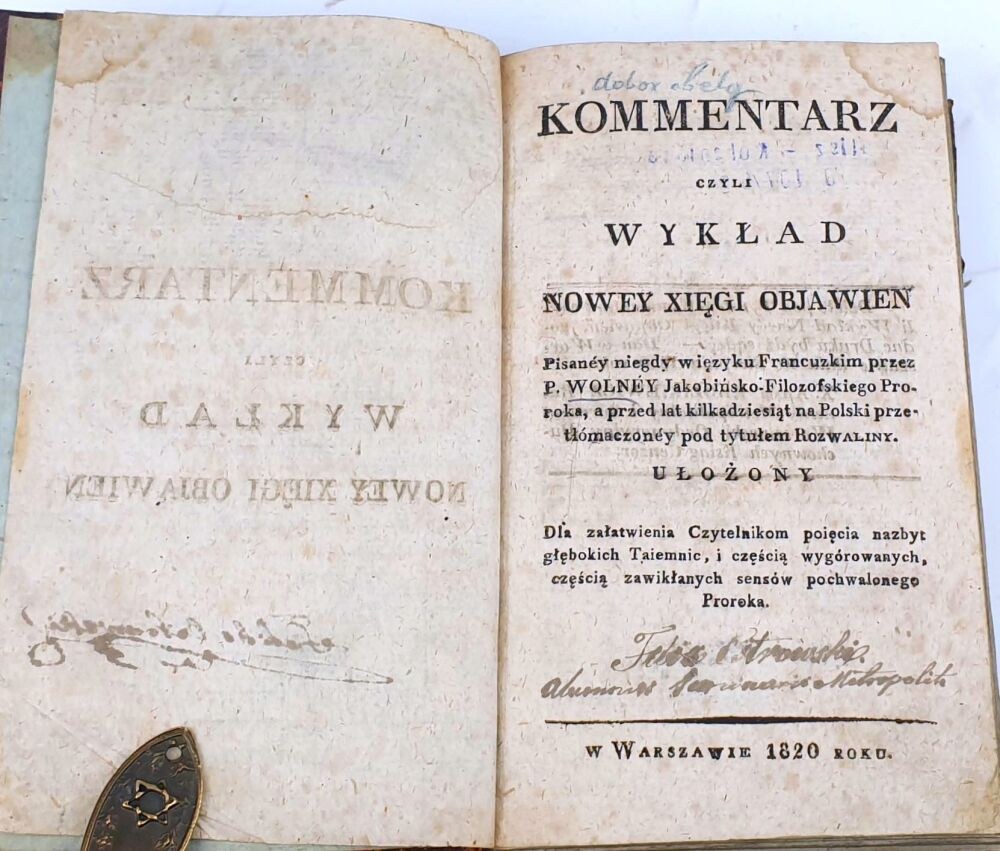 KOMMENTARZ
CZYLI
WYKŁAD
NOWEY XIĘGI OBJAWIEN
Pisanéy niegdy w ięzyku Francuzkim przez
P. WOLNEY Jakobińsko-Filozofskiego Pro-
roka, a przed lat kilkadziesiąt na Polski prze-
tłómaczonéy pod tytułem ROZWALINY.
UŁOŻONY
Dla załatwienia Czytelnikom poięcia nazbyt
głębokich Taiemnic, i częścią wygórowanych,
częścią zawikłanych sensów pochwalonego
Proroka.
Felix Ostrowski
Alumnus Seminarii Metropolit
W WARSZAWIE 1820 ROKU.